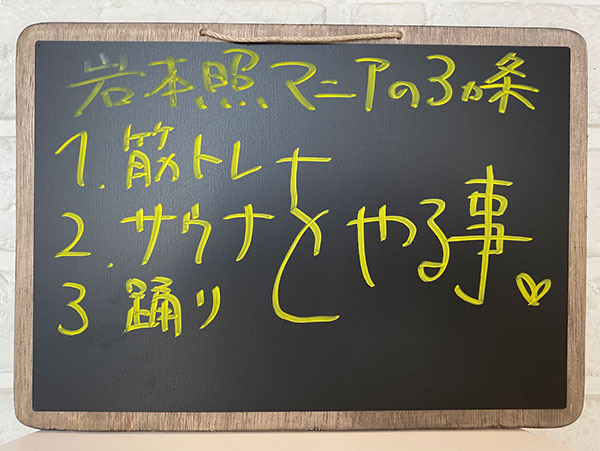 岩本照マニアの3カ条
1. 筋トレ
2. サウナ
3 踊り
をやる事♡